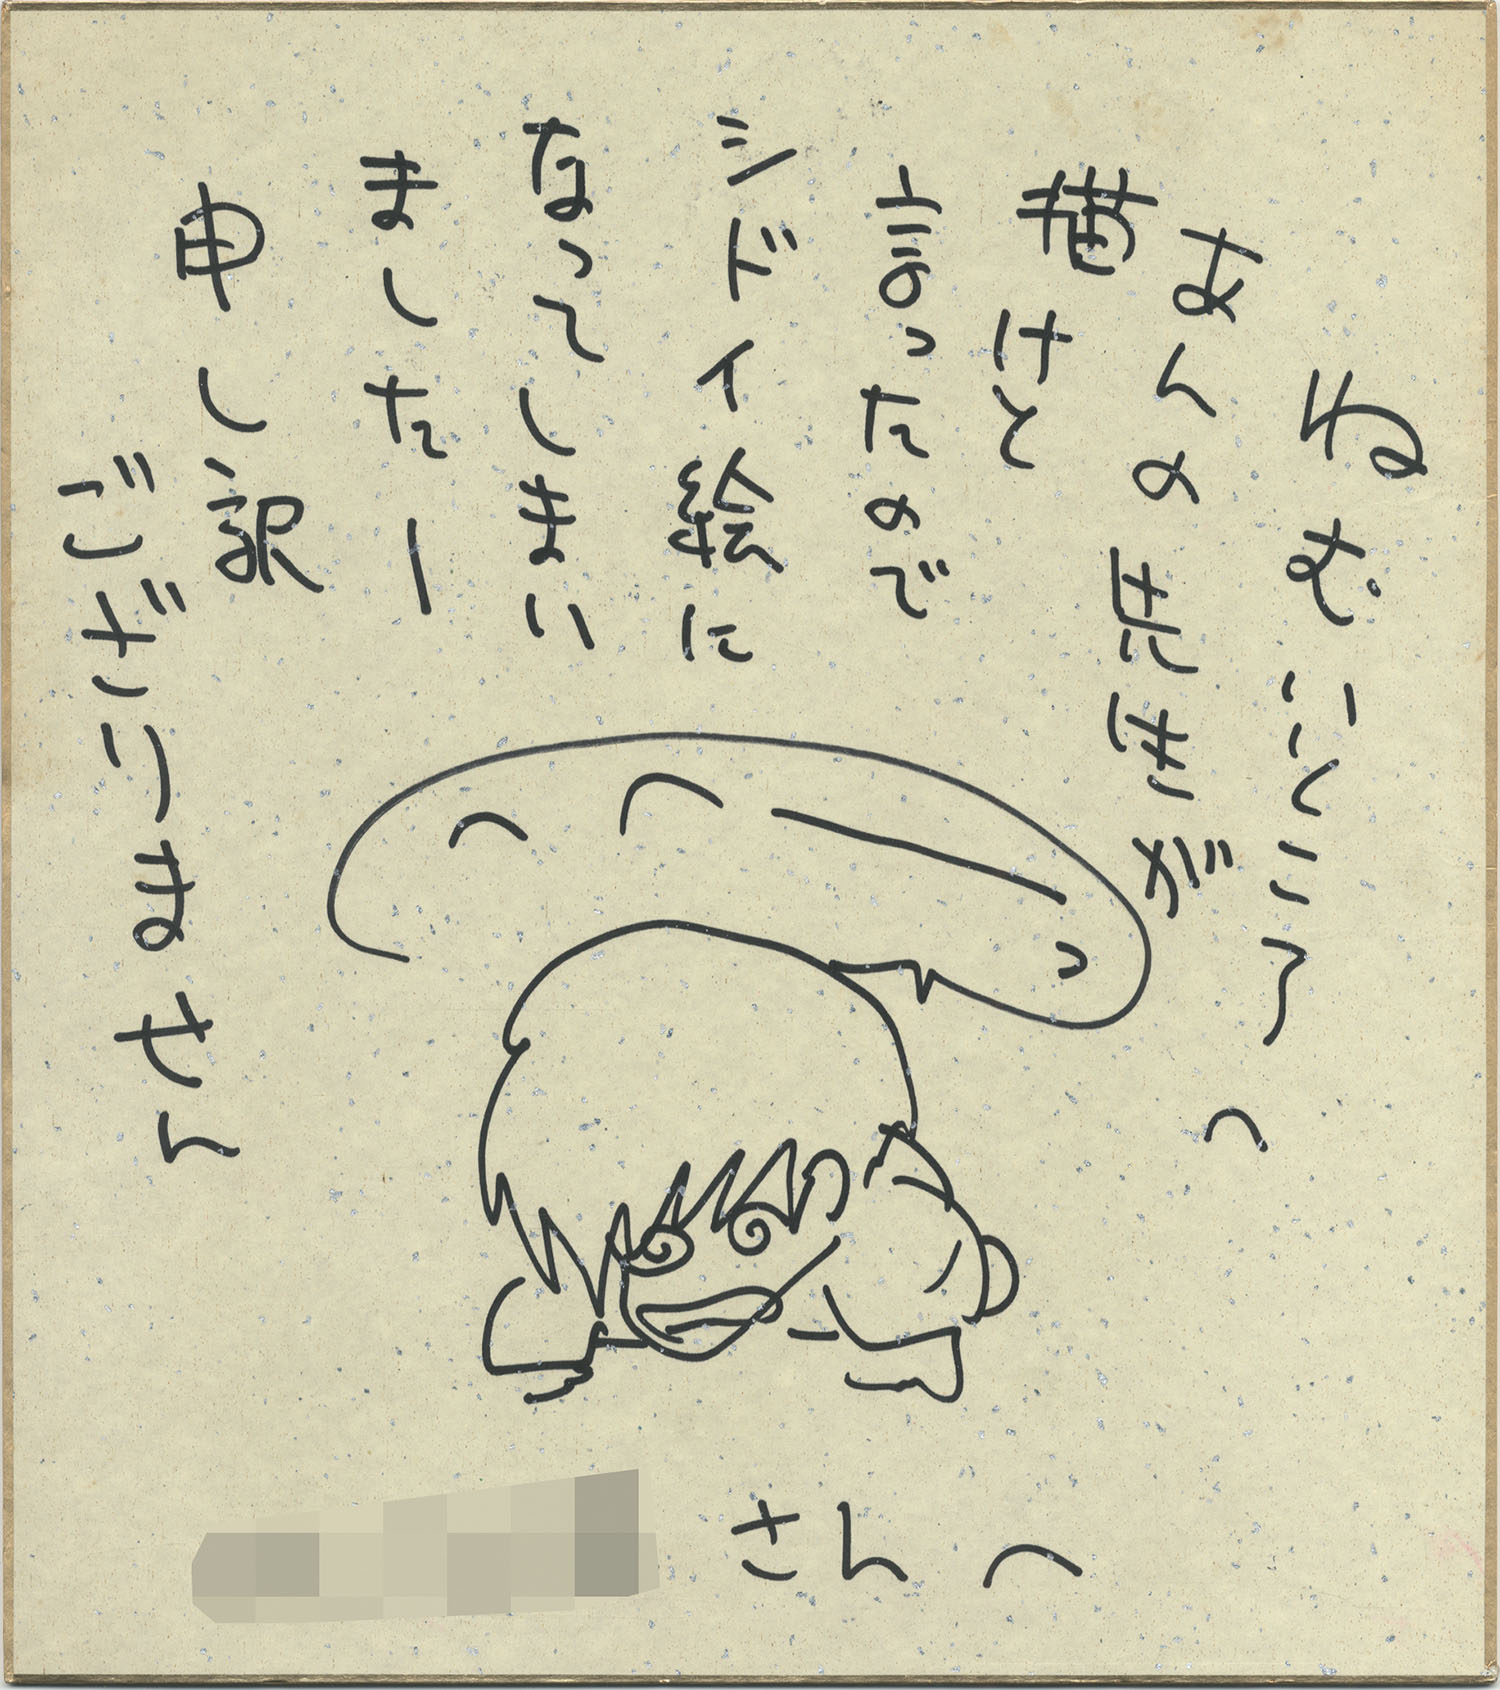 ねむいところへ
あんの が
描けと
言ったので
シドイ絵に
なってしまい
ましたー
申し訳
ございません
さんへ